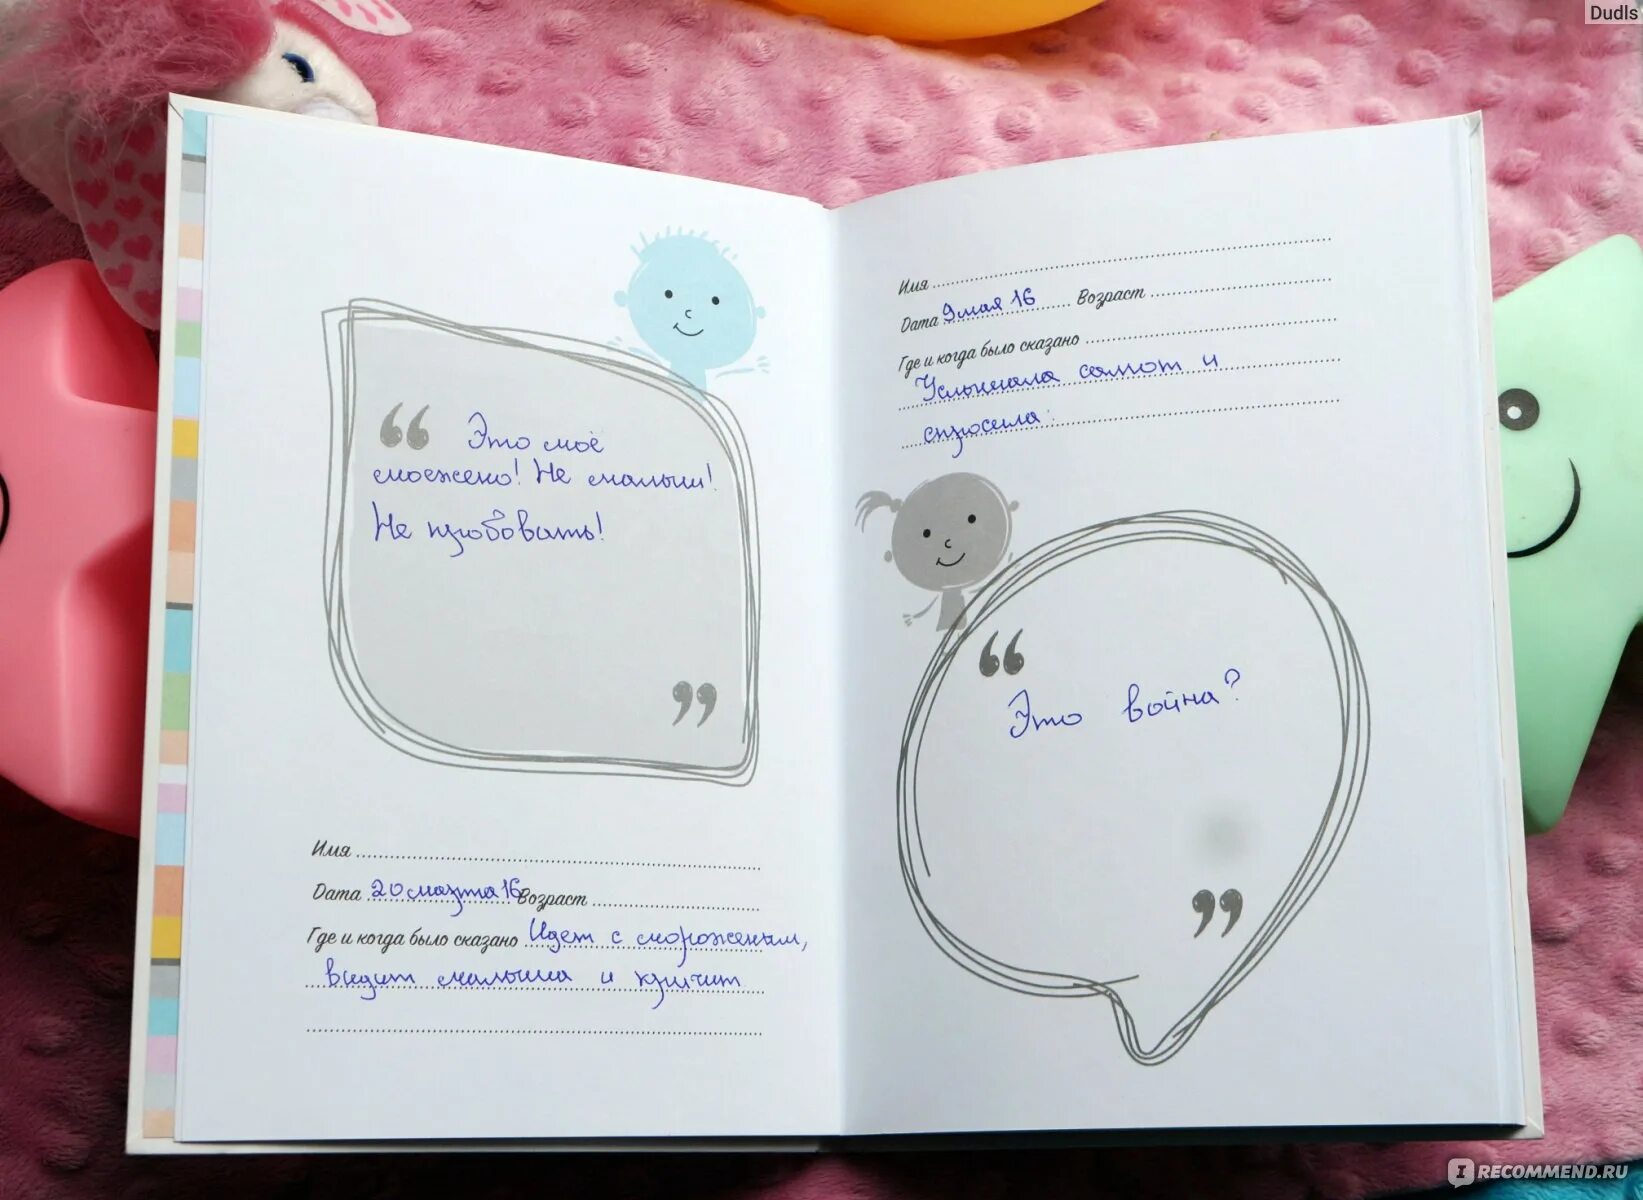 Dudls
“ Это моё
можено! Не малыш!
Не пробовать!
”
Имя
Дата 20 марта 16 Возраст
Где и когда было сказано Идет с мороженым,
видит малыша и кричит
Имя
Дата 9 мая 16 Возраст
Где и когда было сказано
Услышала салют и
спросила:
“
Это война?
”
IRECOMMEND.RU